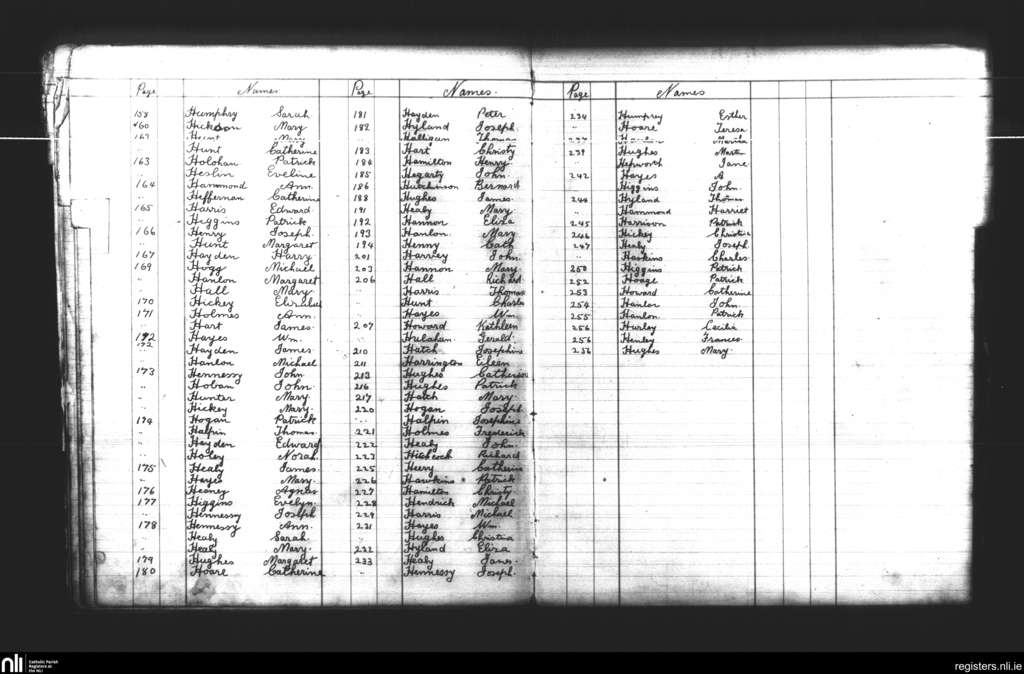 Page Names
158 Humphry Sarah
160 Hickson Mary
162 Hunt Mary
Hunt Catherine
163 Holohan Patrick
" Heslin Eveline
164 Hammond Ann
" Heffernan Catherine
165 Harris Edward
" Higgins Patrick
166 Henry Joseph
" Hunt Margaret
167 Hayden Harry
169 Hogg Michael
" Hanlon Margaret
" Hall Mary
170 Hickey
171 Holmes Ann.
" Hart James
172 Hayes Wm.
172
" Hayden James
" Hanlon Michael
173 Hennessy John
" Hoban John
" Hunter Mary
" Hickey Mary
174 Hogan Patrick
" Halpin Thomas
" Heyden Edward
" Holey Norah
175 Healy James
" Hayes Mary
176 Heaney Agnes
177 Higgins Evelyn
" Hennessy Joseph
178 Hennessy Ann.
" Healy Sarah
" Healy Mary
179 Hughes Margaret
180 Hoare Catherine
Page Names.
181 Hayden Peter
182 Hyland Joseph
" Halligan Thomas
183 Hart Christy
184 Hamilton Henry
185 Hegarty John
186 Hutchinson Bernard
188 Hughes James
191 Healy Mary
192 Hannon Eliza
193 Hanlon Mary
194 Henny Cath
201 Harvey John
203 Hannon Mary
206 Hall Richard
Harris Thomas
" Hunt Charles
" Hayes Wm.
207 Howard Kathleen
Hulahan Gerald
210 Hatch Josephine
211 Harrington Eileen
213 Hughes Catherine
216 Hughes Patrick
217 Hatch Mary
220 Hogan Joseph
" Halpin Josephine
221 Holmes Frederick
222 Healy John
223 Hitchcock Richard
225 Heery Catherine
226 Hawkins Patrick
227 Hamilton Christy
228 Hendrick Michael
229 Harris Michael
231 Hayes Wm.
" Hughes Christina
232 Hyland Eliza
233 Healy James
" Hennessy Joseph
Page Names
234 Humphrey Esther
" Hoare Teresa
Maria
239 Hughes Martin
" Hepworth Jane
242 Hayes A
" Higgins John
244 Hyland Thomas
" Hammond Harriet
245 Harrison Patrick
246 Hickey Christie
247 Healy Joseph
" Haskins Charles
250 Higgins Patrick
252 Hoage Patrick
253 Howard Catherine
254 Hanlon John
255 Hanlon Patrick
256 Hurley Cecilia
256 Henley Frances
256 Hughes Mary
nli Catholic Parish
Registers at
the NLI
registers.nli.ie